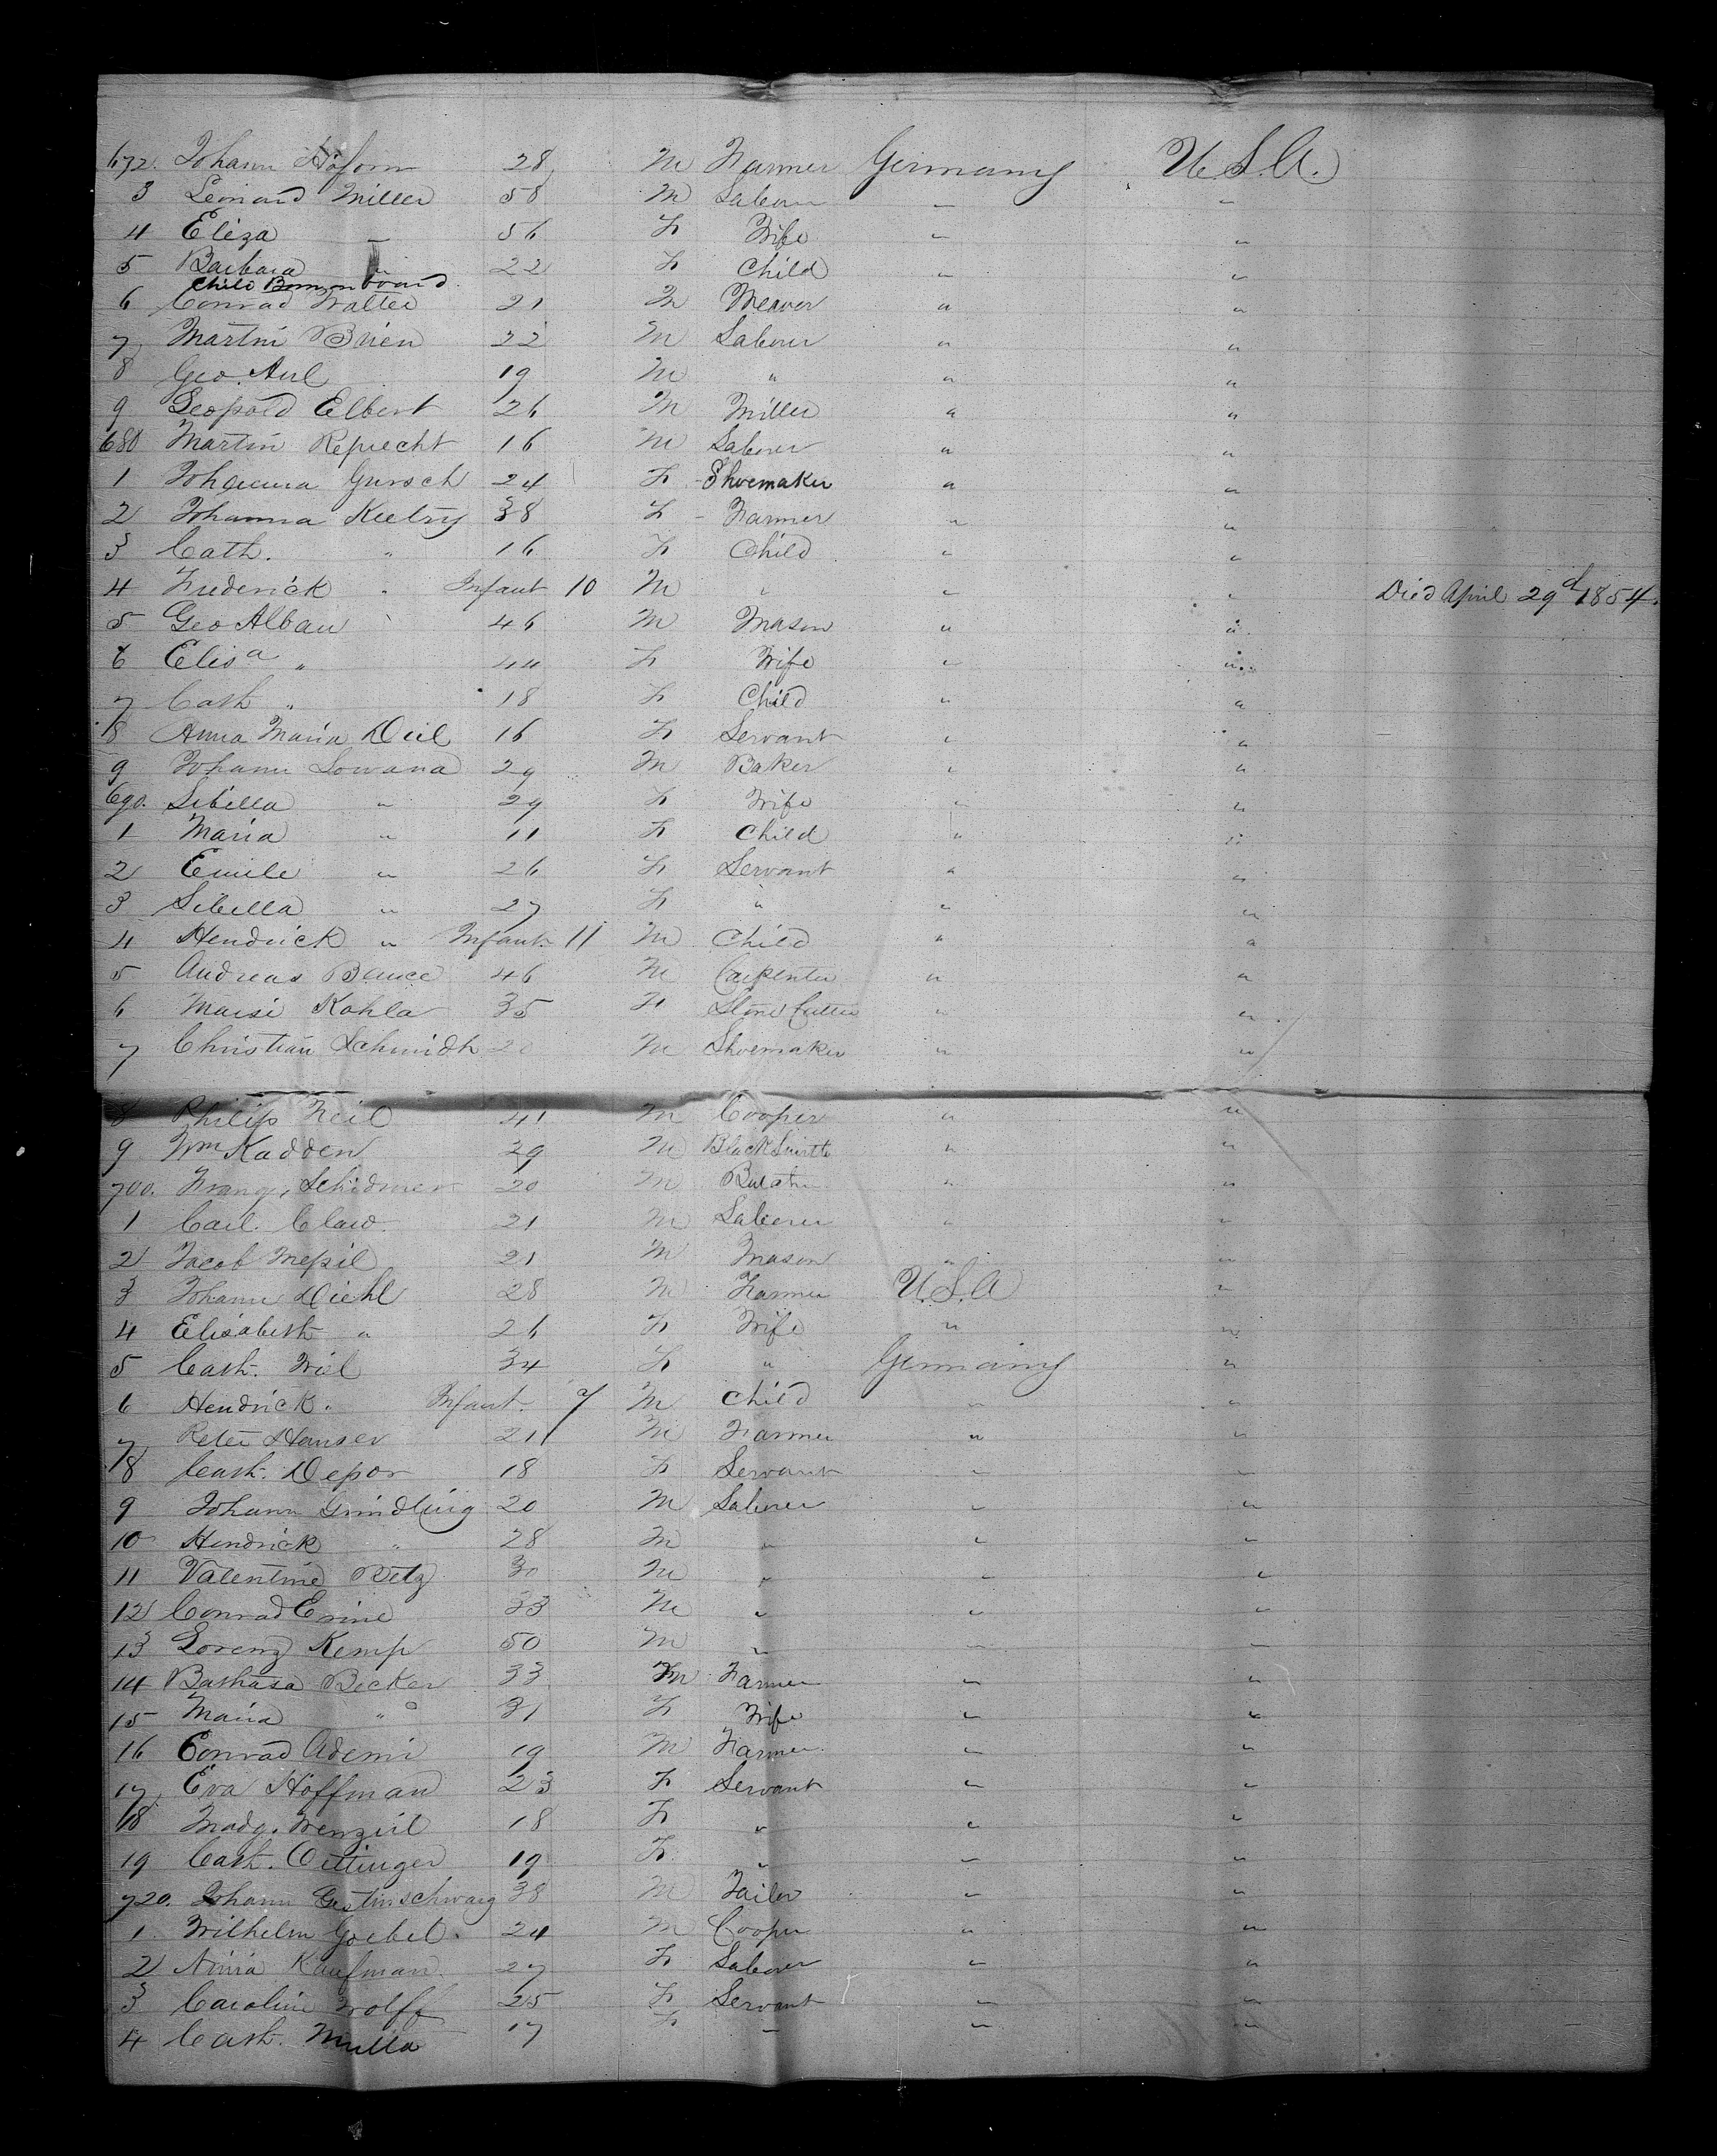 672. Johann Hofom 28 M Farmer Germany U.S.A.
3 Leonard Miller 58 M Laborer " "
4 Eliza " 56 F Wife " "
5 Barbara " 22 F Child " "
Child Born on board
6 Conrad Walter 21 M Weaver " "
7 Martin Brien 22 M Laborer " "
8 Geo. Aul 19 M " " "
9 Leopold Elbert 26 M Miller " "
680 Martin Reprecht 16 M Laborer " "
1 Johanna Gursch 24 F Shoemaker " "
2 Johanna 38 F Farmer " "
3 Cath. " 16 F Child " "
4 Frederick " Infant 10 M " " " Died April 29d 1854.
5 Geo Alban 46 M Mason " "
6 Elisa " 44 F Wife " "
7 Cath " 18 F Child " "
8 Anna Maria Diel 16 F Servant " "
9 Johann Lowana 29 M Baker " "
690. Sibella " 29 F Wife " "
1 Maria " 11 F Child " "
2 Emile " 26 F Servant " "
3 Sibella " 27 F " " "
4 Hendrick " Infant 11 M Child " "
5 Andreas Bauce 46 M Carpenter " "
6 Maisi Kohla 35 F Stone Cutter " "
7 Christian Schmidt 20 M Shoemaker " "
8 Philip Neil 41 M Cooper " "
9 Wm Kadden 29 M BlackSmith " "
700. Franz Schidmer 20 M " "
1 Carl. Claw 21 M Laborer " "
2 Jacob Mepil 21 M Mason " "
3 Johann Diehl 28 M Farmer U.S.A "
4 Elisabeth " 26 F Wife " "
5 Cath. Wiel 34 F " Germany "
6 Hendrick " Infant. 7 M Child " "
7 Peter Hanser 21 M Farmer " "
8 Cath. Depor 18 F Servant " "
9 Johann Grindling 20 M Laborer " "
10 Hendrick " 28 M " " "
11 Valentine Retz 30 M " " "
12 Conrad Erine 33 M " " "
13 Lorenz Kemp 50 M " " "
14 Bathasa Becker 33 M Farmer " "
15 Maria " 31 F Wife " "
16 Conrad Ademi 19 M Farmer " "
17 Eva Hoffman 23 F Servant " "
18 Madg. Wenziel 18 F " " "
19 Cath. Oettinger 19 F " " "
720. Johann 38 M Tailor " "
1. Wilhelm Goebel. 24 M Cooper " "
2 Anna Kaufman 27 F Laborer " "
3 Caroline Wolff 25 F Servant " "
4 Cath. Mulla 17 F " " "